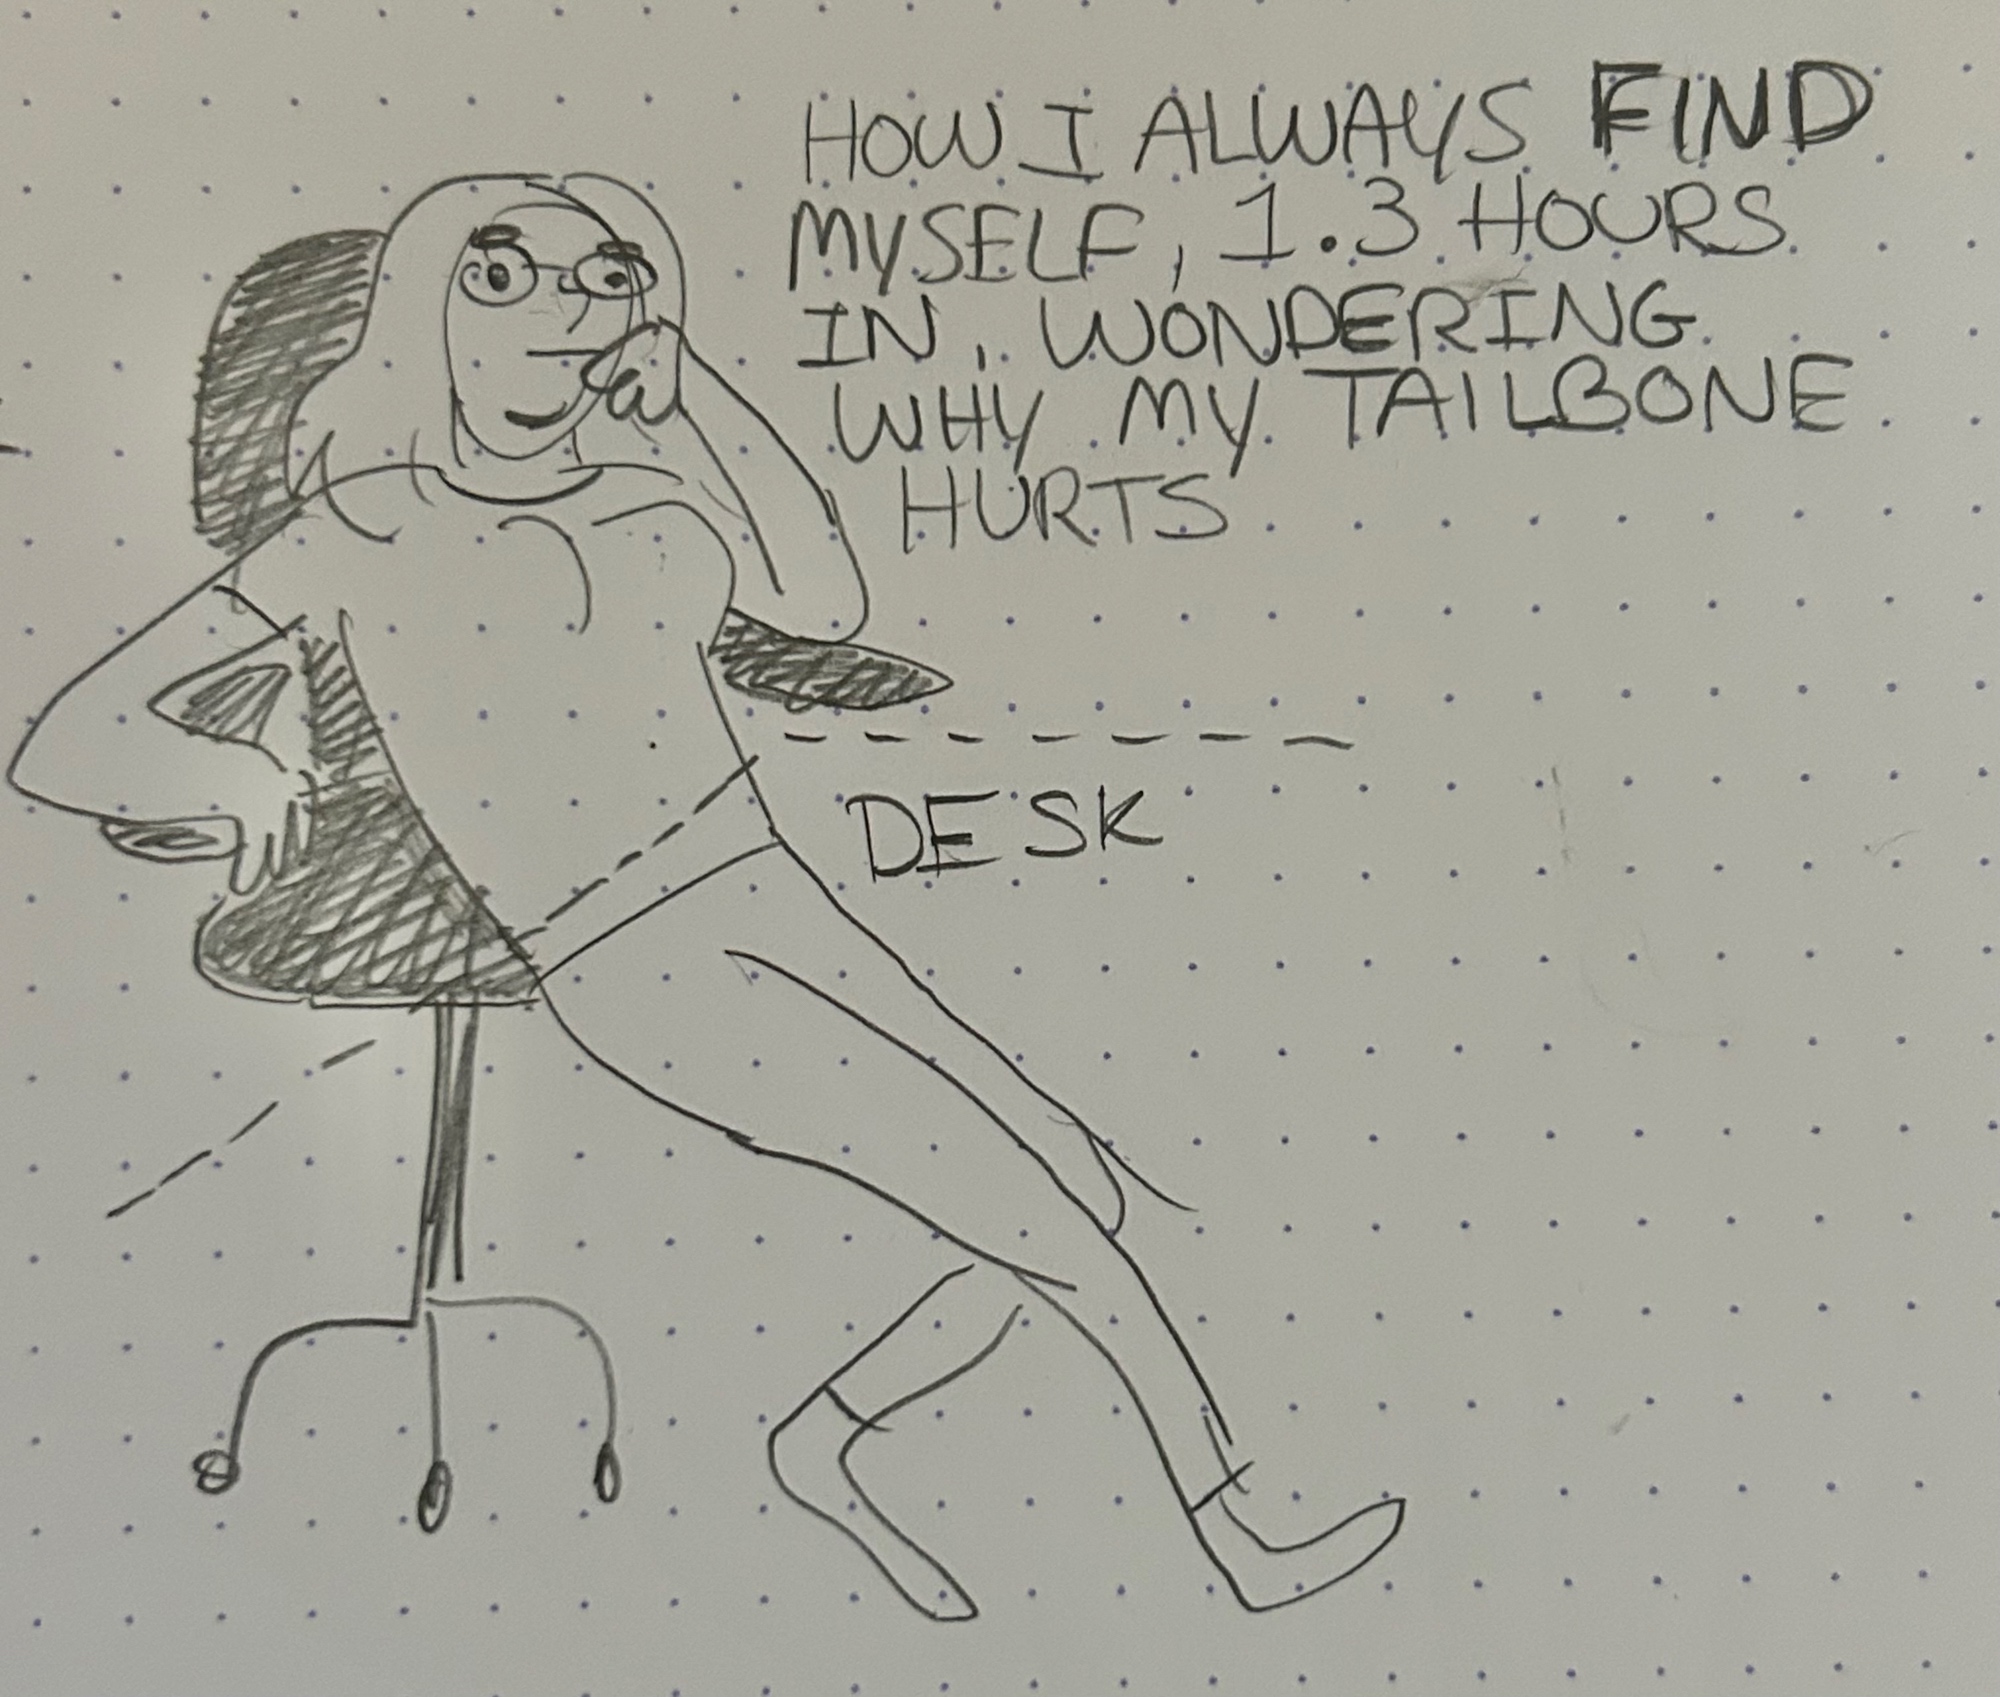 HOW I ALWAYS FIND
MYSELF, 1.3 HOURS
IN, WONDERING
WHY MY TAILBONE
HURTS
DESK